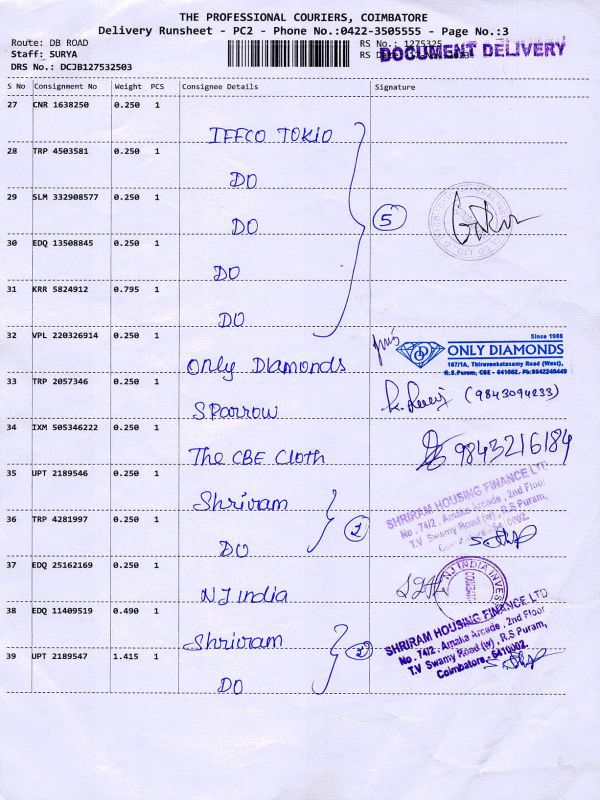 THE PROFESSIONAL COURIERS, COIMBATORE
Delivery Runsheet - PC2 - Phone No.:0422-3505555 - Page No.:3
Route: DB ROAD
Staff: SURYA
DRS No.: DCJB127532503
RS No.: 1275325
RS
DOCUMENT DELIVERY
S No Consignment No Weight PCS Consignee Details Signature
27 CNR 1638250 0.250 1
IFFCO TOKIO
28 TRP 4503581 0.250 1
DO
29 SLM 332908577 0.250 1
DO
5
30 EDQ 13508845 0.250 1
DO
31 KRR 5824912 0.795 1
DO
32 VPL 220326914 0.250 1
Only Diamonds
Since 1988
ONLY DIAMONDS
167/1A, Thiruvenkatasamy Road (West),
R.S.Puram, CBE - 641002. Ph:9842249449
33 TRP 2057346 0.250 1
Sparrow
(9843094233)
34 IXM 505346222 0.250 1
The CBE Cloth
9843216184
35 UPT 2189546 0.250 1
Shriram
SHRIRAM HOUSING FINANCE LTD
No. 74/2, Amaka Arcade, 2nd Floor
T.V Swamy Road (w), R.S Puram,
Coimbatore - 641002.
36 TRP 4281997 0.250 1
DO
2
37 EDQ 25162169 0.250 1
NJ india
NJ INDIA INVEST
38 EDQ 11409519 0.490 1
Shriram
2
SHRIRAM HOUSING FINANCE LTD
No. 74/2, Amaka Arcade, 2nd Floor
T.V Swamy Road (w), R.S Puram,
Coimbatore - 641002.
39 UPT 2189547 1.415 1
DO